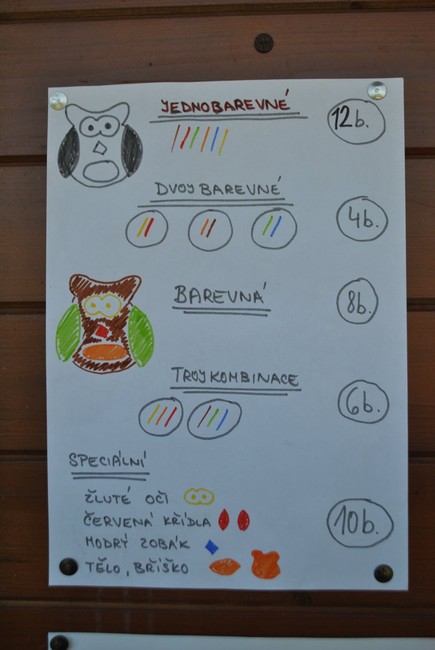 JEDNOBAREVNÉ 12b.
DVOJBAREVNÉ
4b.
BAREVNÁ 8b.
TROJKOMBINACE
6b.
SPECIÁLNÍ
ŽLUTÉ OČI
ČERVENÁ KŘÍDLA 10b.
MODRÝ ZOBÁK
TĚLO, BŘÍŠKO